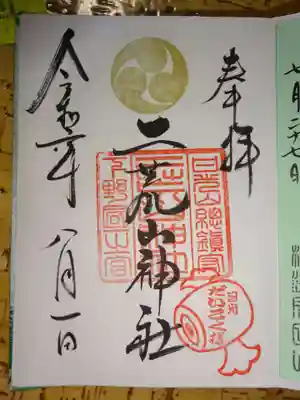 七月二十七日
奉拝
日光山總鎮守
二荒山神社
下野國一宮
日光
だいこく様
令和二年 八月一日